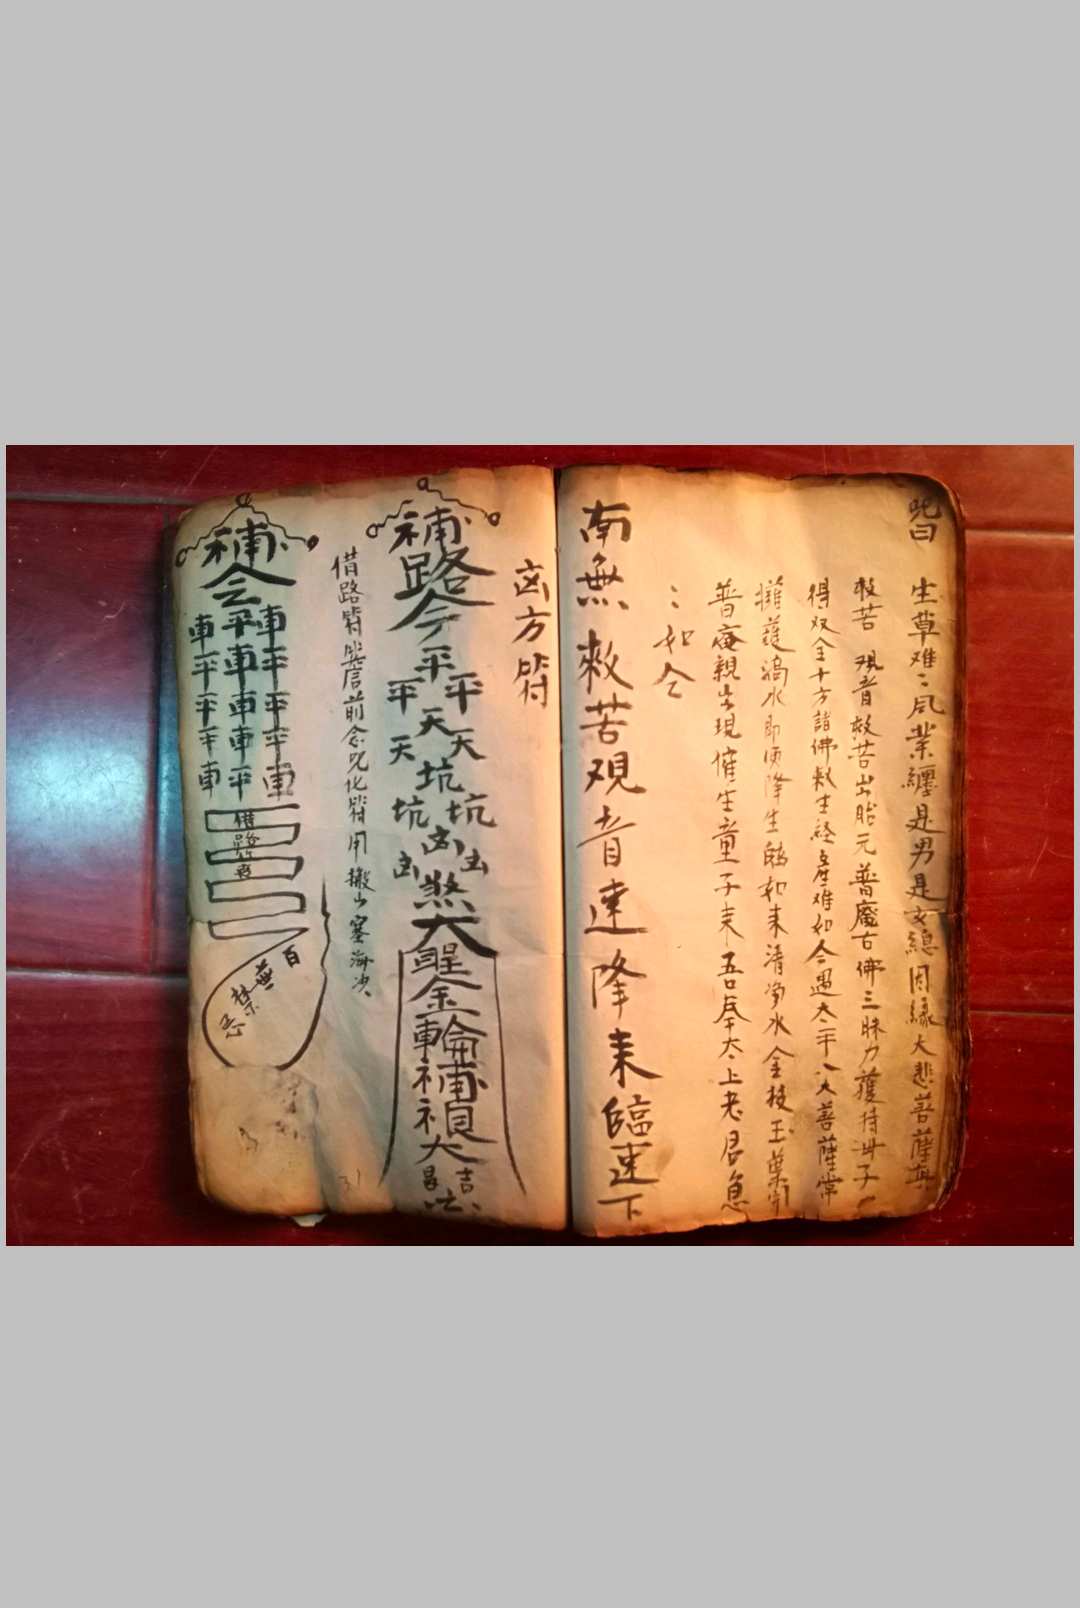 咒曰
生草难〻風業纏是男是女總因緣大悲菩薩
救苦 观音救苦出胎元普庵古佛三昧力護持母子
得双全十方諸佛救生经產难如今遇太平八大菩薩常
擁護滴水即便降生 如来清净水金枝玉葉
普庵親出現催生童子来吾奉太上老君急
〻如令
南無救苦观音速降来臨速下
凶方符
補路令
平平平
天天天
坑坑坑
凶凶凶
煞
大
金輪補
大
昌吉
借路符 前念咒化符用搬山塞海决
補
車平車
平車平
平車平
平車平
車平車
借路
百無禁忌